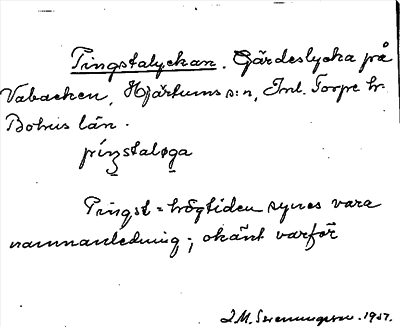 Pingstalyckan. Gärdeslycka på
Vabacken, Hjärtums s:n, Inl. Torpe hr
Bohus län.
píŋstaløga
Pingst-högtiden synes vara
namnanledning; okänt varför
1937.